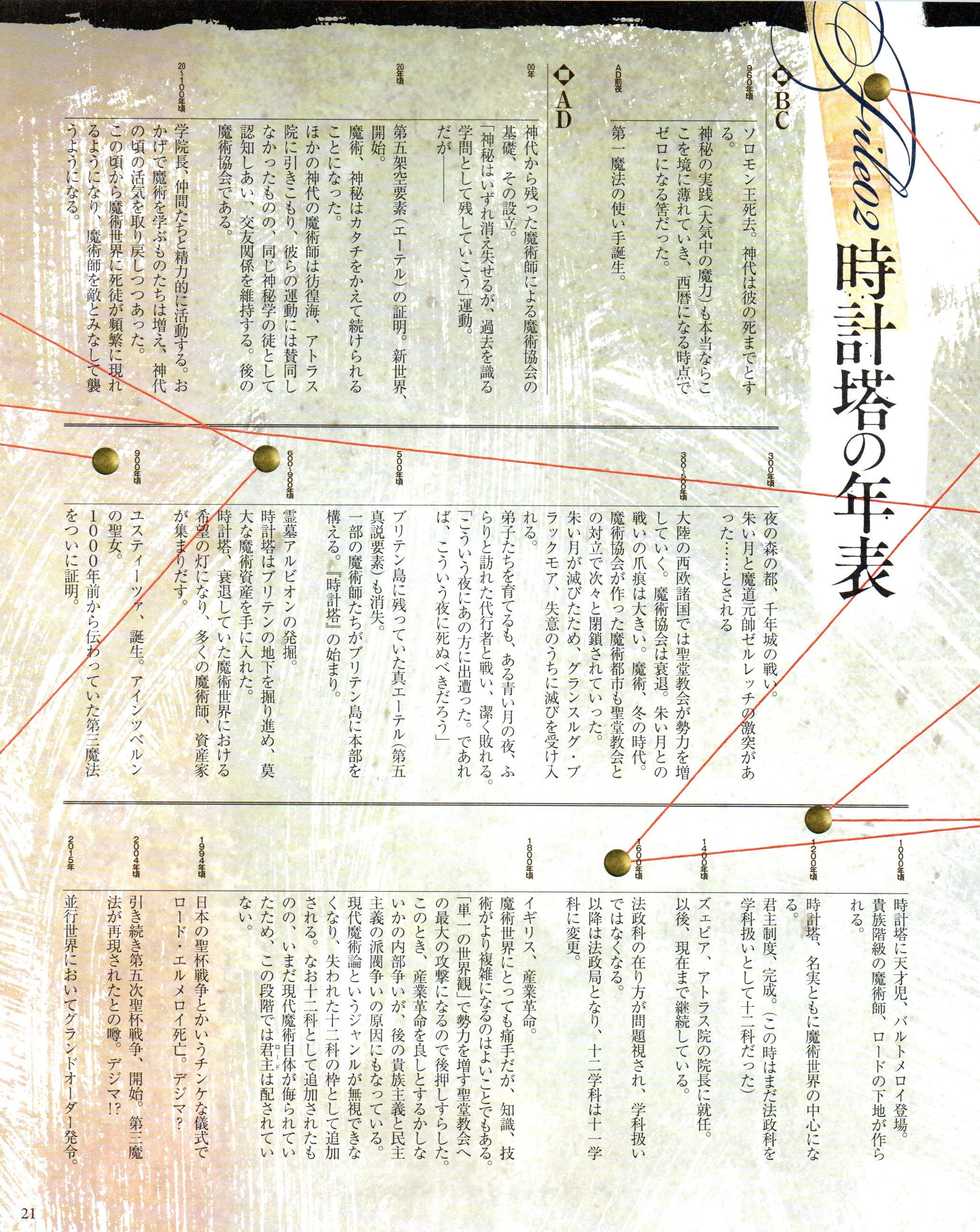 File02
時計塔の年表
BC
960年頃
ソロモン王死去。神代は彼の死までとす
る。
神秘の実践(大気中の魔力)も本当ならこ
こを境に薄れていき、西暦になる時点で
ゼロになる筈だった。
AD前夜
第一魔法の使い手誕生。
AD
00年
神代から残った魔術師による魔術協会の
基礎、その設立。
「神秘はいずれ消え失せるが、過去を識る
学問として残していこう」運動。
だが――
20年頃
第五架空要素(エーテル)の証明。新世界、
開始。
魔術、神秘はカタチをかえて続けられる
ことになった。
ほかの神代の魔術師は彷徨海、アトラス
院に引きこもり、彼らの運動には賛同し
なかったものの、同じ神秘学の徒として
認知しあい、交友関係を維持する。後の
魔術協会である。
20~100年頃
学院長、仲間たちと精力的に活動する。お
かげで魔術を学ぶものたちは増え、神代
の頃の活気を取り戻しつつあった。
この頃から魔術世界に死徒が頻繁に現れ
るようになり、魔術師を敵とみなして襲
うようになる。
300年頃
夜の森の都、千年城の戦い。
朱い月と魔道元帥ゼルレッチの激突があ
った……とされる
300~500年頃
大陸の西欧諸国では聖堂教会が勢力を増
していく。魔術協会は衰退。朱い月との
戦いの爪痕は大きい。魔術、冬の時代。
魔術協会が作った魔術都市も聖堂教会と
の対立で次々と閉鎖されていった。
朱い月が滅びたため、グランスルグ・ブ
ラックモア、失意のうちに滅びを受け入
れる。
弟子たちを育てるも、ある青い月の夜、ふ
らりと訪れた代行者と戦い、潔く敗れる。
「こういう夜にあの方に出遭った。であれ
ば、こういう夜に死ぬべきだろう」
500年頃
ブリテン島に残っていた真エーテル(第五
真説要素)も消失。
一部の魔術師たちがブリテン島に本部を
構える。『時計塔』の始まり。
600~900年頃
霊墓アルビオンの発掘。
時計塔はブリテンの地下を掘り進め、莫
大な魔術資産を手に入れた。
時計塔、衰退していた魔術世界における
希望の灯になり、多くの魔術師、資産家
が集まりだす。
900年頃
ユスティーツァ、誕生。アインツベルン
の聖女。
1000年前から伝わっていた第三魔法
をついに証明。
1000年頃
時計塔に天才児、バルトメロイ登場。
貴族階級の魔術師、ロードの下地が作ら
れる。
1200年頃
時計塔、名実ともに魔術世界の中心にな
る。
君主制度、完成。(この時はまだ法政科を
学科扱いとして十二科だった)
1400年頃
ズェピア、アトラス院の院長に就任。
以後、現在まで継続している。
1600年頃
法政科の在り方が問題視され、学科扱い
ではなくなる。
以降は法政局となり、十二学科は十一学
科に変更。
1800年頃
イギリス、産業革命。
魔術世界にとっても痛手だが、知識、技
術がより複雑になるのはよいことでもある。
「単一の世界観」で勢力を増す聖堂教会へ
の最大の攻撃になるので後押しすらした。
このとき、産業革命を良しとするかしな
いかの内部争いが、後の貴族主義と民主
主義の派閥争いの原因にもなっている。
現代魔術論というジャンルが無視できな
くなり、失われた十二科の枠として追加
される。なお十二科として追加されたも
のの、いまだ現代魔術自体が侮られてい
たため、この段階では君主は配されてい
ない。
1994年頃
日本の聖杯戦争とかいうチンケな儀式で
ロード・エルメロイ死亡。デジマ?
2004年頃
引き続き第五次聖杯戦争、開始。第三魔
法が再現されたとの噂。デジマ!?
2015年
並行世界においてグランドオーダー発令。
21